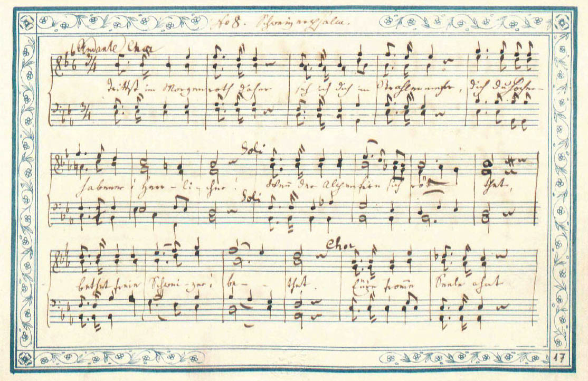 No 8. Schweizerpsalm.
Andante Chor
3/4
trittst im Morgenroth daher seh ich dich im Strahlenmeer, dich du Hocher-
3/4
Soli
habener! Herr-li-cher! Wenn der Alpenfirn sich röt thet,
Soli
Chor
betet freie Schweizer! be-tet. Eure fromme Seele ahnt
17